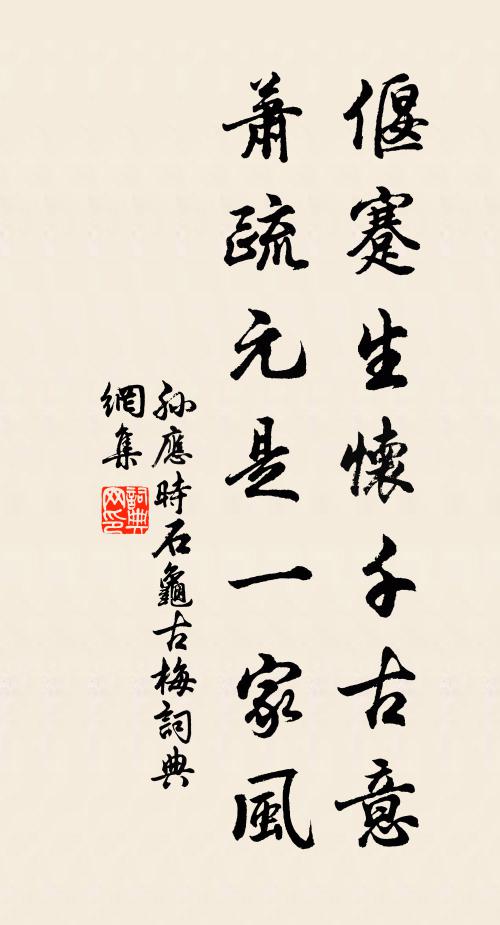 偃蹇生懷千古意
蕭疏元是一家風
孫應時石龜古梅詞典
網集
詞典
网印